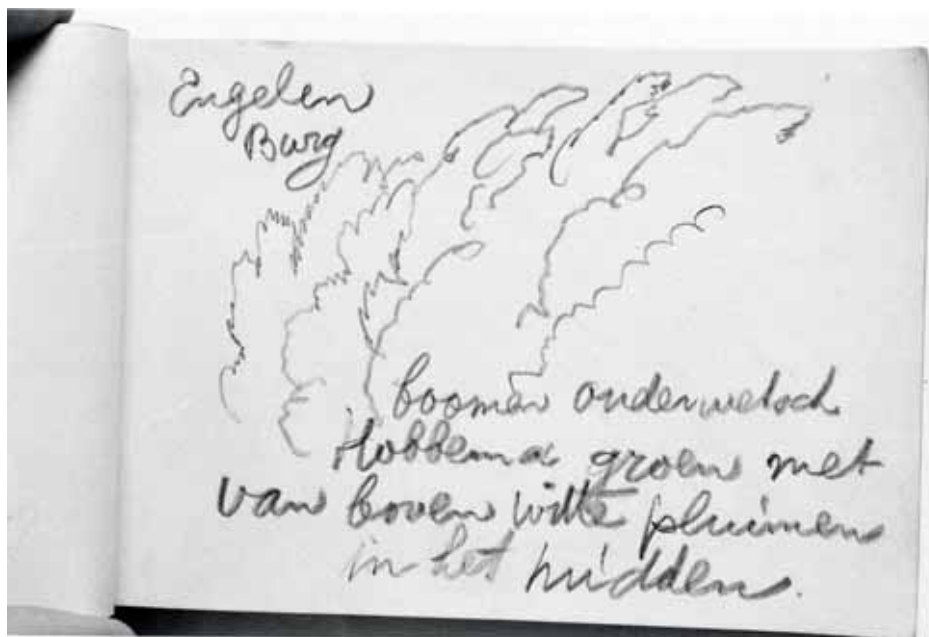 Engelen
Burg
boomen ouderwetsch
Hobbema groen met
van boven witte pluimen
in het midden.